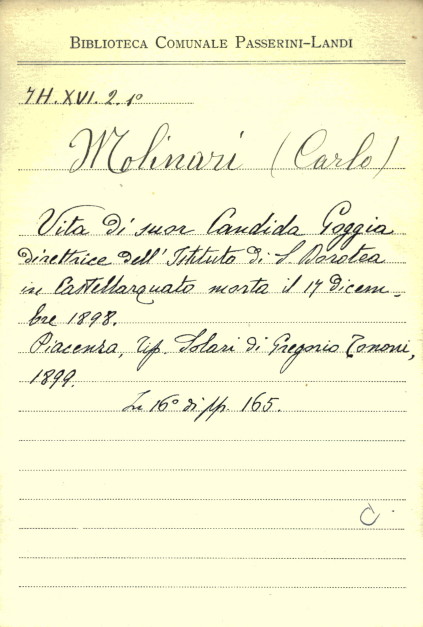 BIBLIOTECA COMUNALE PASSERINI-LANDI
7H. XVI. 2. 1º
Molinari (Carlo)
Vita di suor Candida Goggia
direttrice dell' Istituto di S. Dorotea
in Castellarquato morta il 17 dicem-
bre 1898.
Piacenza, Tip. Solari di Gregorio Tononi,
1899.
In 16º di pp. 165.
C